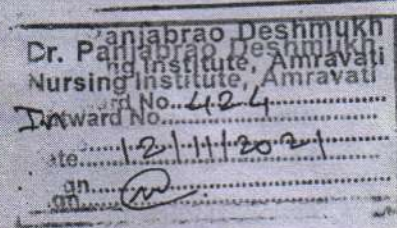 Dr. Panjabrao Deshmukh
Nursing Institute, Amravati
Inward No. 424
ate 12/11/2021
gn